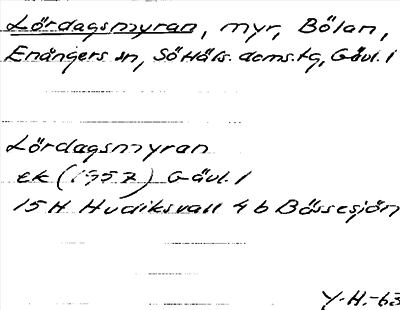 Lördagsmyran, myr, Bölan,
Enångers sn, SöHäls. doms.tg, Gävl. l
Lördagsmyran
ek (1957) Gävl. l
15H Hudiksvall 4 b Bössesjön
Y-H.-63